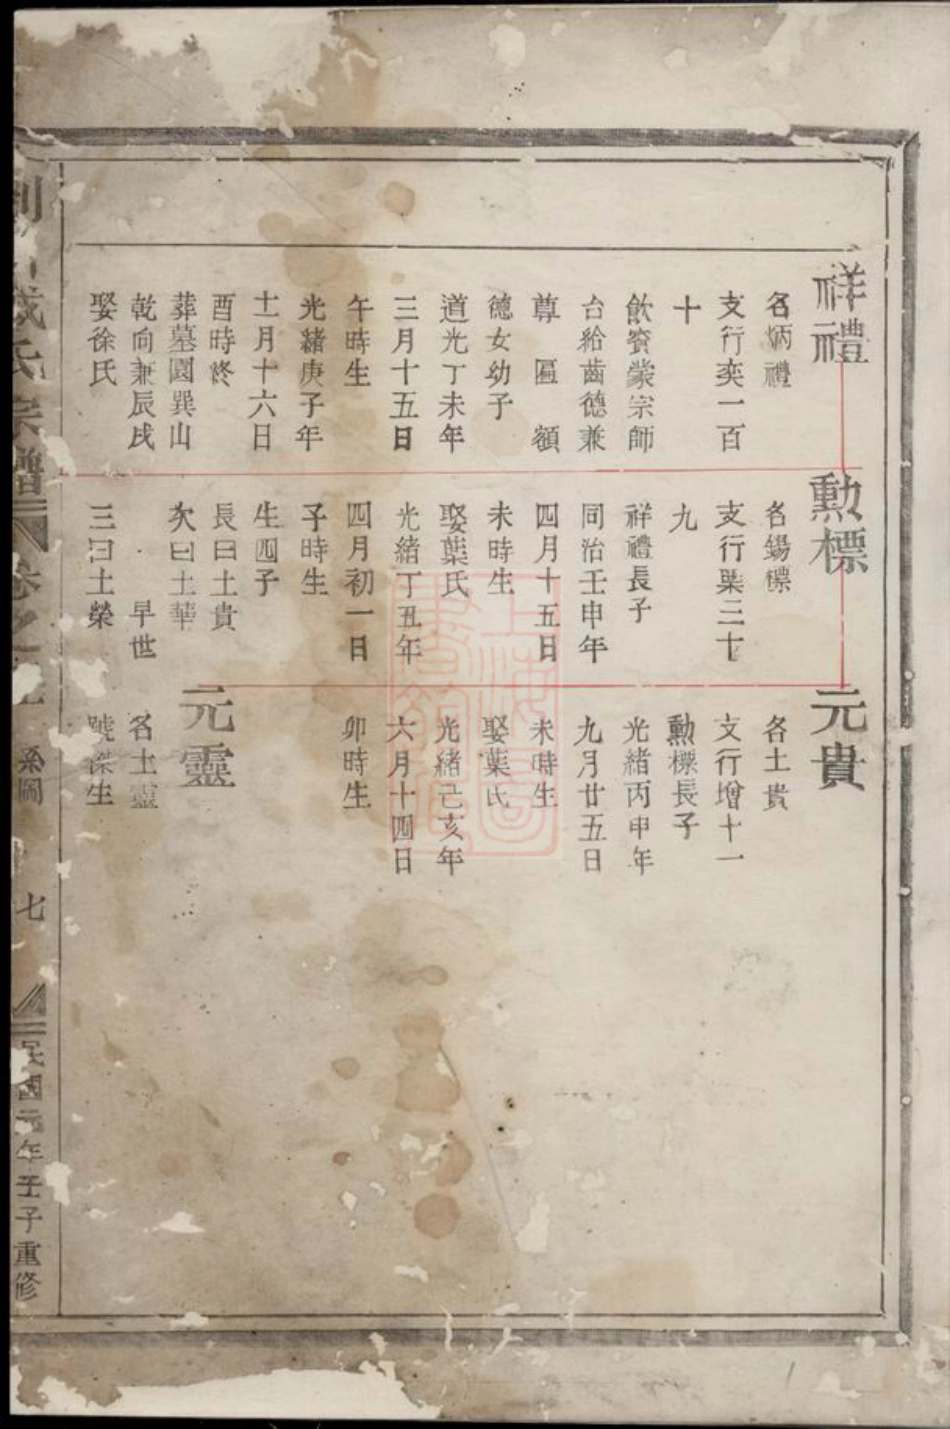 祥禮
名炳禮
支行奕一百
十
飲賓蒙宗師
台給齒德兼
尊匾額
德女幼子
道光丁未年
三月十五日
午時生
光緒庚子年
十一月十六日
酉時終
葬墓園巽山
乾向兼辰戌
娶徐氏
勲標
名錫標
支行葉三十
九
祥禮長子
同治壬申年
四月十五日
未時生
娶葉氏
光緒丁丑年
四月初一日
子時生
生四子
長曰土貴
次曰土華
早世
三曰土榮
元貴
名土貴
文行增十一
勲標長子
光緒丙申年
九月廿五日
未時生
娶葉氏
光緒己亥年
六月十四日
卯時生
元靈
名土靈
號傑生
氏宗譜
系圖
七
民國元年壬子重修
上海圖書館藏